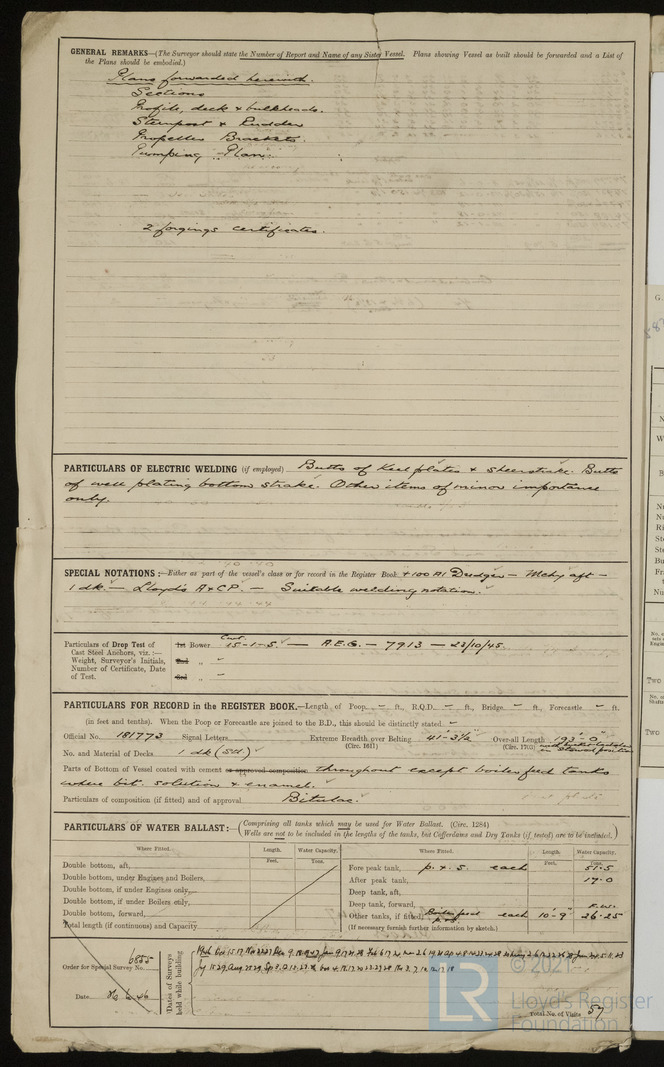 GENERAL REMARKS—(The Surveyor should state the Number of Report and Name of any Sister Vessel. Plans showing Vessel as built should be forwarded and a List of
the Plans should be embodied.)
Plans forwarded herewith.
Sections
Profile, deck & bulkheads.
Sternpost & Rudder
Propeller Brackets.
Pumping Plan.
2 forgings certificates.
PARTICULARS OF ELECTRIC WELDING (if employed) Butts of Keel plates & sheerstrake. Butts
of well plating bottom strake. Other items of minor importance
only.
SPECIAL NOTATIONS:—Either as part of the vessel's class or for record in the Register Book +100A1 Dredger — Mchy aft —
1 dk — Lloyd's A & CP. — Suitable welding notation.
Particulars of Drop Test of
Cast Steel Anchors, viz.:—
Weight, Surveyor's Initials,
Number of Certificate, Date
of Test.
1st Bower 15-1-5. — A.E.G. — 7913 — 23/10/45.
2nd „ -
3rd „ -
PARTICULARS FOR RECORD in the REGISTER BOOK.—Length of Poop - ft., R.Q.D. - ft., Bridge - ft., Forecastle - ft.
(in feet and tenths). When the Poop or Forecastle are joined to the B.D., this should be distinctly stated
Official No. 181773 Signal Letters Extreme Breadth over Belting 41'-3½" Over-all Length 193'-0"
(Circ. 1611) (Circ. 1703)
No. and Material of Decks 1 dk (Stl)
Parts of Bottom of Vessel coated with cement or approved composition throughout except boiler feed tanks
where bit. solution & enamel.
Particulars of composition (if fitted) and of approval Bitulac.
PARTICULARS OF WATER BALLAST:—(Comprising all tanks which may be used for Water Ballast. (Circ. 1284)
Wells are not to be included in the lengths of the tanks, but Cofferdams and Dry Tanks (if tested) are to be included.)
Where Fitted. Length. Water Capacity. Where Fitted. Length. Water Capacity.
Feet. Tons. Feet. Tons.
Double bottom, aft,
Double bottom, under Engines and Boilers,
Double bottom, if under Engines only,
Double bottom, if under Boilers only,
Double bottom, forward,
Total length (if continuous) and Capacity
Fore peak tank, P. & S. each 51.5
After peak tank, 17.0
Deep tank, aft,
Deep tank, forward, F.W.
Other tanks, if fitted, Boiler feed P. & S. each 10'-9" 26.25
(If necessary furnish further information by sketch.)
Order for Special Survey No. 6855
Date
Dates of Surveys held while building
Total No. of Visits 57
© 2021
LR
Lloyd's Register
Foundation